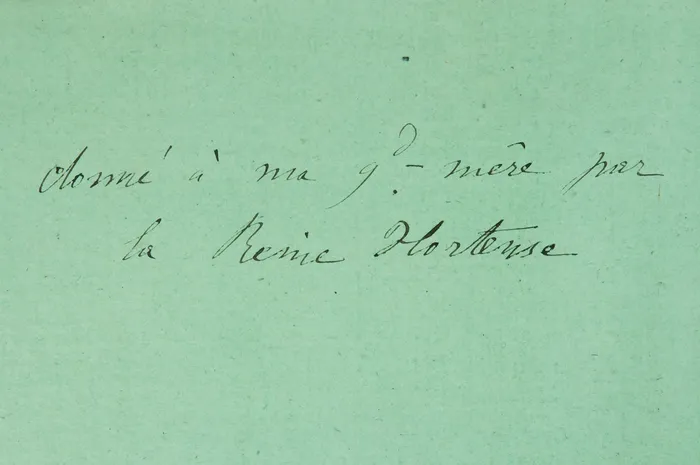 donné à ma gd-mère par
la Reine Hortense